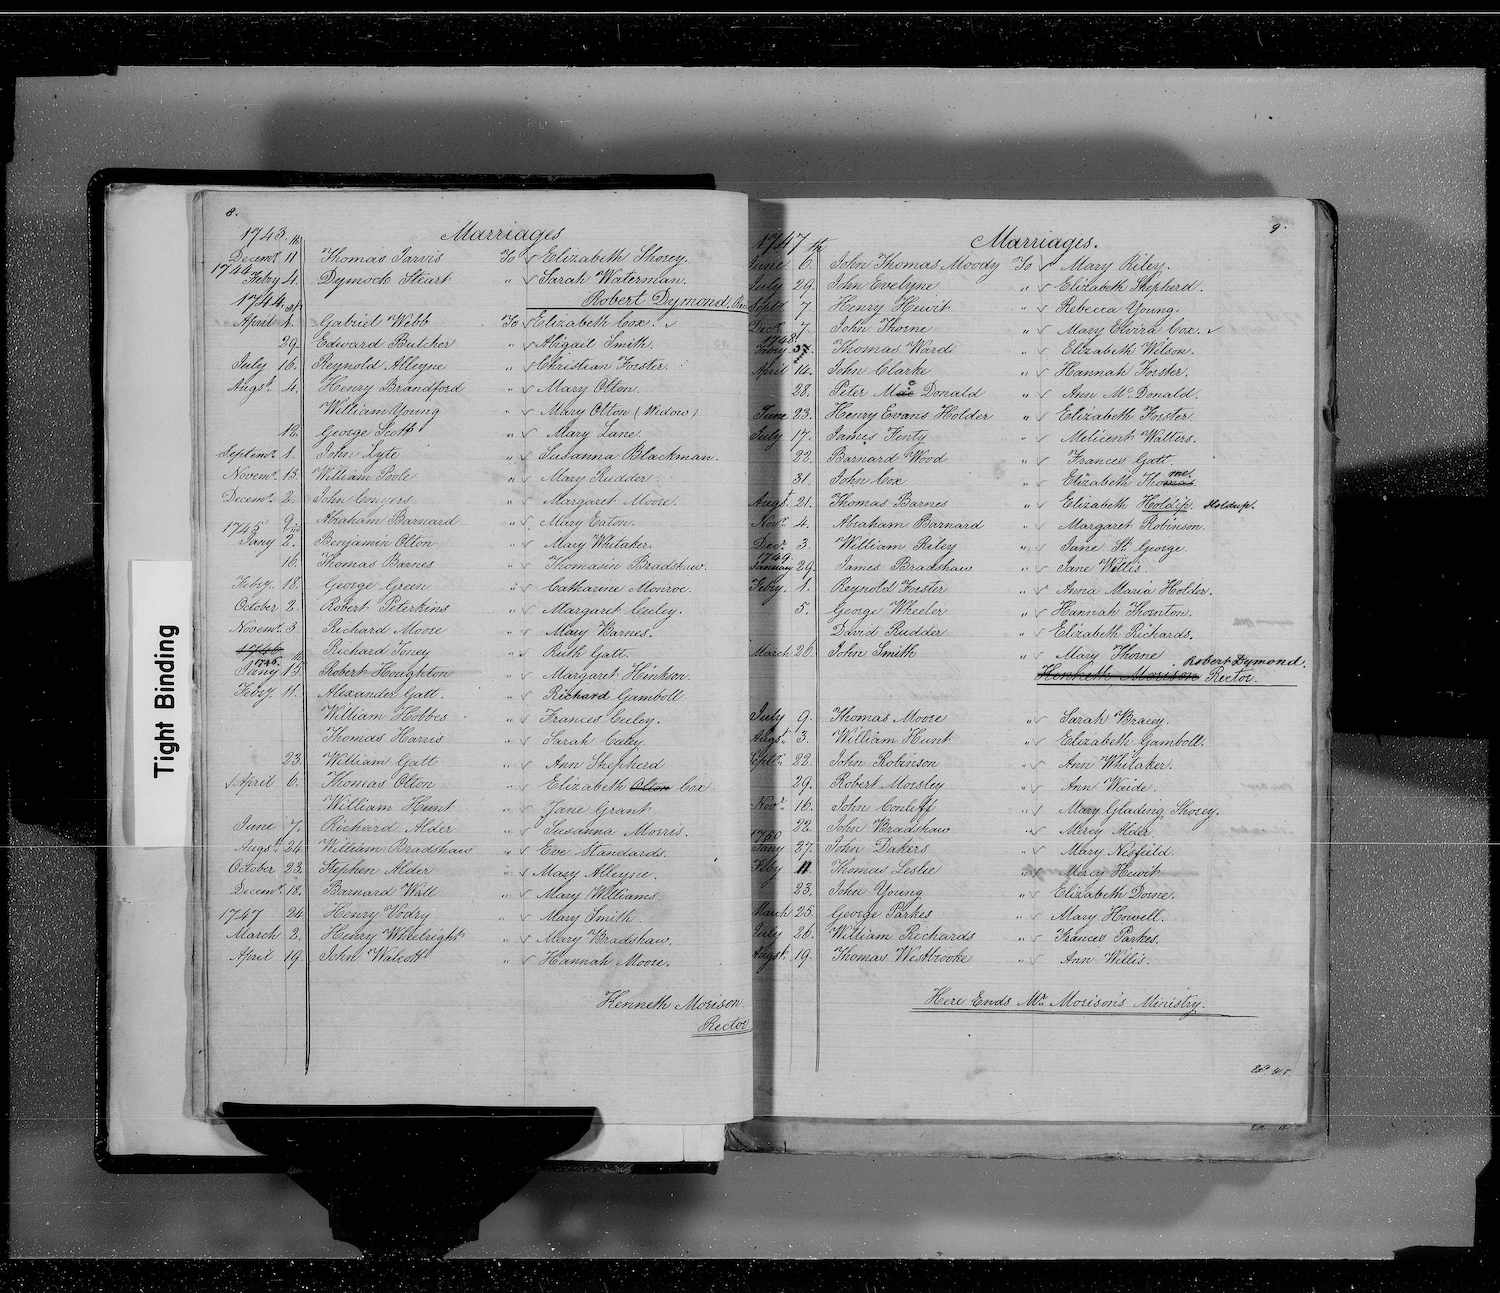 8.
Marriages
1743.
Decemr. 11 Thomas Jarvis To Elizabeth Shorey.
1744
Feby 4. Dymock Steart " Sarah Waterman.
Robert Dymond.
1744.
April 1. Gabriel Webb To Elizabeth Cox.
29. Edward Butcher " Abigail Smith.
July 16. Reynold Alleyne " Christian Forster.
Augst. 4. Henry Brandford " Mary Olton.
William Young " Mary Olton (Widow)
12. George Scott " Mary Lane.
Septemr. 1. John Lyte " Susanna Blackman.
Novemr. 13. William Poole " Mary Rudder
Decemr. 2. John Conyers " Margaret Moore.
9 Abraham Barnard " Mary Eaton.
1745
Jany 2. Benjamin Olton " Mary Whitaker.
16. Thomas Barnes " Thomasin Bradshaw.
Feby. 18. George Green " Catharine Monroe.
October 2. Robert Peterkins " Margaret Culey.
Novemr. 3. Richard Moore " Mary Barnes.
1746 Richard Toney " Ruth Gatt.
1746.
Jany 15. Robert Houghton " Margaret Hinkson.
Feby. 11. Alexander Gatt. " Richard Gamboll
William Hobbes " Frances Culey.
Thomas Harris " Sarah Culey
23. William Gatt " Ann Shepherd
April 6. Thomas Olton " Elizabeth Olton Cox
William Hunt " Jane Grant.
June 7. Richard Alder " Susanna Morris.
Augst. 24 William Bradshaw " Eve Standards.
October 23. Stephen Alder " Mary Alleyne.
Decemr. 18. Barnard Will " Mary Williams.
1747 24 Henry Vodry " Mary Smith.
March 2. Henry Whelright " Mary Bradshaw.
April 19. John Walcott " Hannah Moore.
Kenneth Morison
Rector
9.
Marriages.
1747 th
June 6. John Thomas Moody To Mary Riley.
July 29. John Evelyne " Elizabeth Shepherd.
Septr. 7 Henry Hewit " Rebecca Young.
Decr. 7. John Thorne " Mary Elvira Cox.
1748
Feby 27. Thomas Ward " Elizabeth Wilson.
April 14. John Clarke " Hannah Forster.
28. Peter Mac Donald " Ann Mc. Donald.
June 23. Henry Evans Holder " Elizabeth Forster
July 17. James Fenty " Melicent Walters.
22. Barnard Wood " Frances Gatt.
31. John Cox " Elizabeth Thomas
Augst. 21. Thomas Barnes " Elizabeth Holdip. Holdup.
Novr. 4. Abraham Barnard " Margaret Robinson.
Decr. 3. William Riley " Jane St. George.
1749
January 29. James Bradshaw " Jane Willis.
Feby. 1. Reynold Forster " Anna Maria Holder.
5. George Wheeler " Hannah Thornton.
David Rudder " Elizabeth Richards.
March 26. John Smith " Mary Thorne
Robert Dymond.
Kenneth Morison Rector.
July 9. Thomas Moore " Sarah Bracey.
Augst. 3. William Hunt " Elizabeth Gamboll.
Septr. 22. John Robinson " Ann Whitaker.
29. Robert Morsley " Ann Waide.
Novr. 16. John Conliff " Mary Glading Shorey.
22. John Bradshaw " Mercy Alder
1750
Jany 27. John Dakers " Mary Nesfield.
Feby 11 Thomas Leslie " Mercy Hewit
23. John Young " Elizabeth Dowie.
March 25. George Parkes " Mary Howell.
July 26. William Richards " Frances Parkes.
Augst. 19. Thomas Westbrooke " Ann Willis.
Here Ends Mr. Morison's Ministry.
Tight Binding